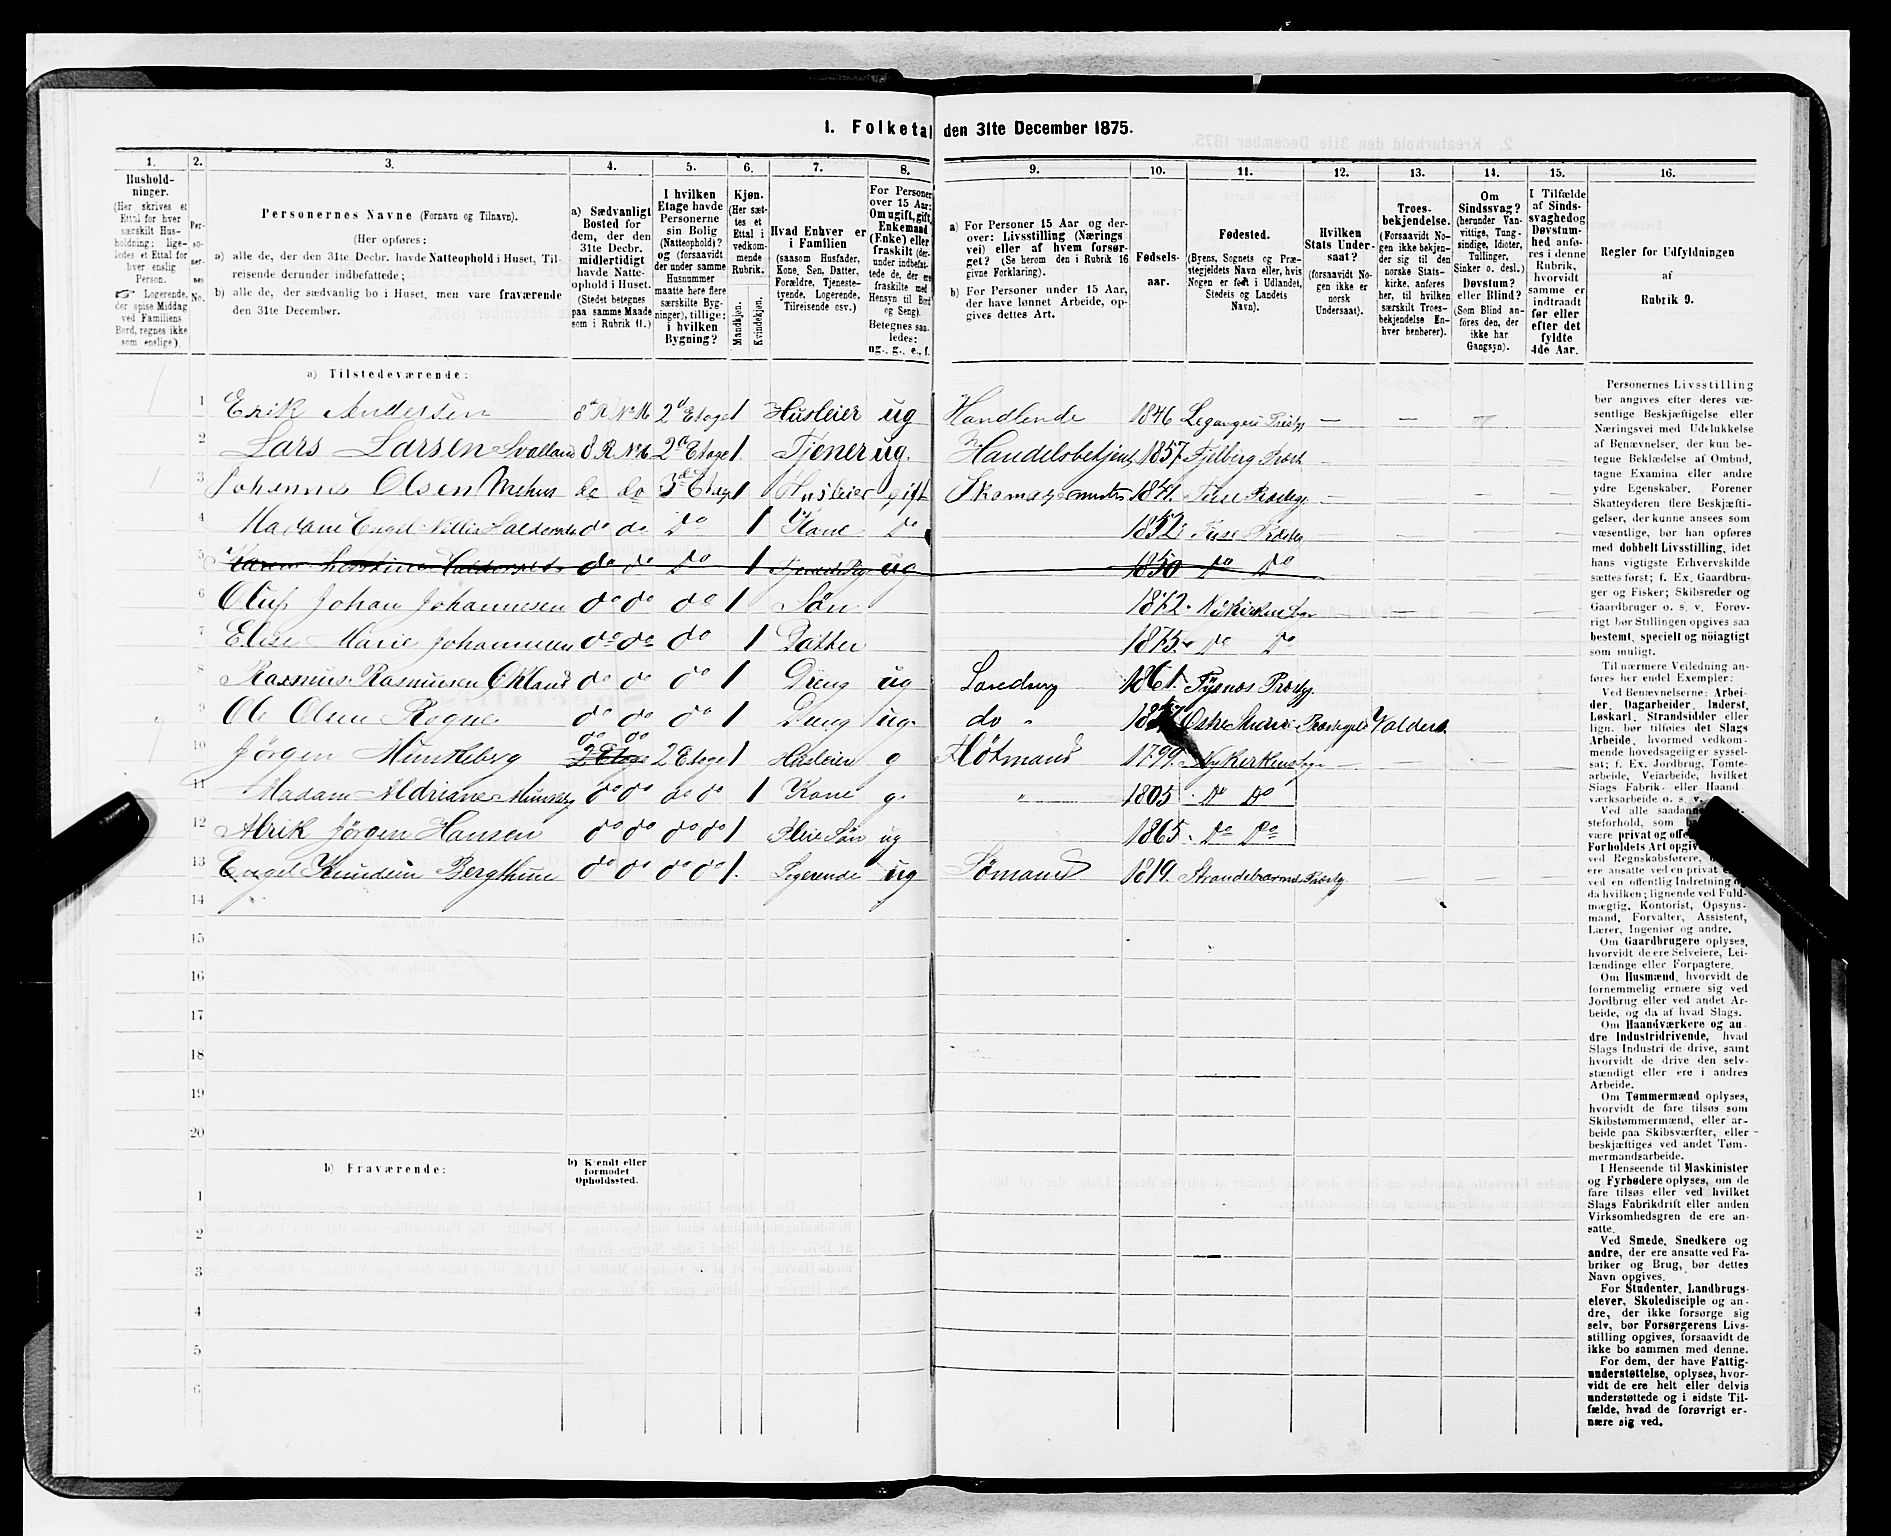 1. Folketal den 31te December 1875.
1. 2. 3. 4. 5. 6. 7. 8. 9. 10. 11. 12. 13. 14. 15. 16.
Husholdninger.
(Her skrives et
Ettal for hver
særskilt Husholdning;
ligeledes et Ettal for
hver enslig
Person.
☞ Logerende,
der spise Middag
ved Familiens
Bord, regnes ikke
som enslige).
Personernes No.
Personernes Navne (Fornavn og Tilnavn).
(Her opføres:
a) alle de, der den 31te Decbr. havde Natteophold i Huset, Tilreisende
derunder indbefattede;
b) alle de, der sædvanlig bo i Huset, men vare fraværende
den 31te December.
a) Sædvanligt
Bosted for
dem, der den
31te Decbr.
midlertidigt
havde Natteophold
i Huset.
(Stedet betegnes
paa samme Maade
som i Rubrik 11.)
I hvilken
Etage havde
Personerne
sin Bolig
(Natteophold)?
og (forsaavidt
der under samme
Husnummer
maatte høre flere
særskilte Bygninger),
tillige:
i hvilken
Bygning?
Kjøn.
(Her sættes
et
Ettal i
vedkommende
Rubrik.
Mandkjøn.
Kvindekjøn.
Hvad Enhver er
i Familien
(saasom Husfader,
Kone, Søn, Datter,
Forældre, Tjenestetyende,
Logerende,
Tilreisende osv.)
For Personer
over 15 Aar:
Om ugift, gift,
Enkemand
(Enke) eller
fraskilt (derunder
indbefattede
de, der ere
fraskilte med
Hensyn til Bord
og Seng).
Betegnes saaledes:
ug., g., e., f.
a) For Personer 15 Aar og derover:
Livsstilling (Næringsvei)
eller af hvem forsørget?
(Se herom den i Rubrik 16
givne Forklaring).
b) For Personer under 15 Aar,
der have lønnet Arbeide, opgives
dettes Art.
Fødselsaar.
Fødested.
(Byens, Sognets og Præstegjeldets
Navn eller, hvis
Nogen er født i Udlandet,
Stedets og Landets
Navn).
Hvilken
Stats Undersaat?
(forsaavidt Nogen
ikke er
norsk
Undersaat).
Troesbekjendelse.
(Forsaavidt Nogen
ikke bekjender
sig til den
norske Statskirke,
anføres
her, til hvilken
særskilt Troesbekjendelse
Enhver
henhører).
Om
Sindssvag?
(herunder Vanvittige,
Tungsindige,
Idioter,
Tullinger,
Sinker o. desl.)
Døvstum?
eller Blind?
(Som Blind anføres
den, der
ikke har
Gangsyn).
I Tilfælde
af Sindssvaghed og
Døvstumhed
anføres
i denne
Rubrik,
hvorvidt
samme er
indtraadt
før eller
efter det
fyldte
4de Aar.
Regler for Udfyldningen
af
Rubrik 9.
a) Tilstedeværende:
1 Erik Andersen 8d R No 16 2d Etage 1 Husleier ug Handlende 1846 Legangers Præstg — — —
2 Lars Larsen Svalland 8 R No 16 2d Etage 1 Tjener ug. Handelsbetjent 1857 Fjelberg Præst — — — —
3 Johannes Olsen Mehus do do 3d Etage 1 Husleier gift Skomagermester 1841. Præsteg — — — —
4 Madam Engel do do Do 1 Kone Do 1852 Præsteg — — — —
5 do do Do 1 ug 1850 Do Do
6 Oluf Johan Johannesen do do do 1 Søn 1872. Nykirken Ber — — — —
7 Elise Marie Johannesen do do do 1 Datter 1875. Do Do
8 Rasmus Rasmussen Økland do do do 1 Dreng ug Læredreng 1861. Tysnæs Præstg. — — — —
9 Ole Olsen Rogne do do do 1 Dreng ug. do " Præstegjeld Valders.
10 Jørgen Munkeberg do do 2 Etage 2 Etage 1 Husleier g 1799. Nykirkens — — — —
11 Madam Aldriane Munkebg do do do do 1 Kone g. " 1805 Do Do
12 Alrik Jørgen Hansen do do do do 1 Pleie Søn ug 1865 Do Do
13 Engel Knudsen Bergthun do do do do 1. Logerende ug Sømand 1819. Strandebarms Præstg. — — —
14
15
16
17
18
19
20
b) Fraværende:
b) Kjendt eller
formodet
Opholdssted.
1
2
3
4
5
6
Personernes Livsstilling
bør angives efter deres væsentlige
Beskjæftigelse eller
Næringsvei med Udelukkelse
af Benævnelser, der kun betegne
Beklædelse af Ombud,
tagne Examina eller andre
ydre Egenskaber. Forener
Skatteyderen flere Beskjæftigelser,
der kunne ansees som
væsentlige, bør han opføres
med dobbelt Livsstilling, idet
hans vigtigste Erhvervskilde
sættes først; f. Ex. Gaardbruger
og Fisker; Skibsreder og
Gaardbruger o. s. v. Forøvrigt
bør Stillingen opgives saa
bestemt, specielt og nøiagtigt
som muligt.
Til nærmere Veiledning anføres
her endel Exempler:
Ved Benævnelserne: Arbeider,
Dagarbeider, Inderst,
Løskarl, Strandsidder eller
lign. bør tilføies det Slags
Arbeide, hvormed vedkommende
hovedsagelig er sysselsat;
f. Ex. Jordbrug, Tomtearbeide,
Veiarbeide, hvilket
Slags Fabrik- eller Haandværksarbeide
o. s. v.
Ved alle saadanne
være privat og
Forholdets Art opgives
ved Regnskabsførere,
ere ansatte ved en privat
ved en offentlig Indretning og
da hvilken; lignende ved Fuldmægtig,
Kontorist, Opsynsmand,
Forvalter, Assistent,
Lærer, Ingeniør og andre.
Om Gaardbrugere oplyses,
hvorvidt de ere Selveiere, Leilændinge
eller Forpagtere.
Om Husmænd, hvorvidt de
fornemmelig ernære sig ved
Jordbrug eller ved andet Arbeide,
og da af hvad Slags.
Om Haandværkere og andre
Industridrivende, hvad
Slags Industri de drive, samt
hvorvidt de drive den selvstændigt
eller ere i andres
Arbeide.
Om Tømmermænd oplyses,
hvorvidt de fare tilsøs som
Skibstømmermænd, eller arbeide
paa Skibsværfter, eller
beskjæftiges ved andet Tømmermandsarbeide.
I Henseende til Maskinister
og Fyrbødere oplyses, om de
fare tilsøs eller ved hvilket
Slags Fabrikdrift eller anden
Virksomhedsgren de ere ansatte.
Ved Smede, Snedkere og
andre, der ere ansatte ved Fabriker
og Brug, bør dettes
Navn opgives.
For Studenter, Landbrugselever,
Skoledisciple og andre,
der ikke forsørge sig
selv, bør Forsørgerens Livsstilling
opgives, forsaavidt de
ikke bo sammen med denne.
For dem, der have Fattigunderstøttelse,
oplyses, hvorvidt
de ere helt eller delvis
understøttede og i sidste Tilfælde,
hvad de forøvrigt ernære
sig ved.